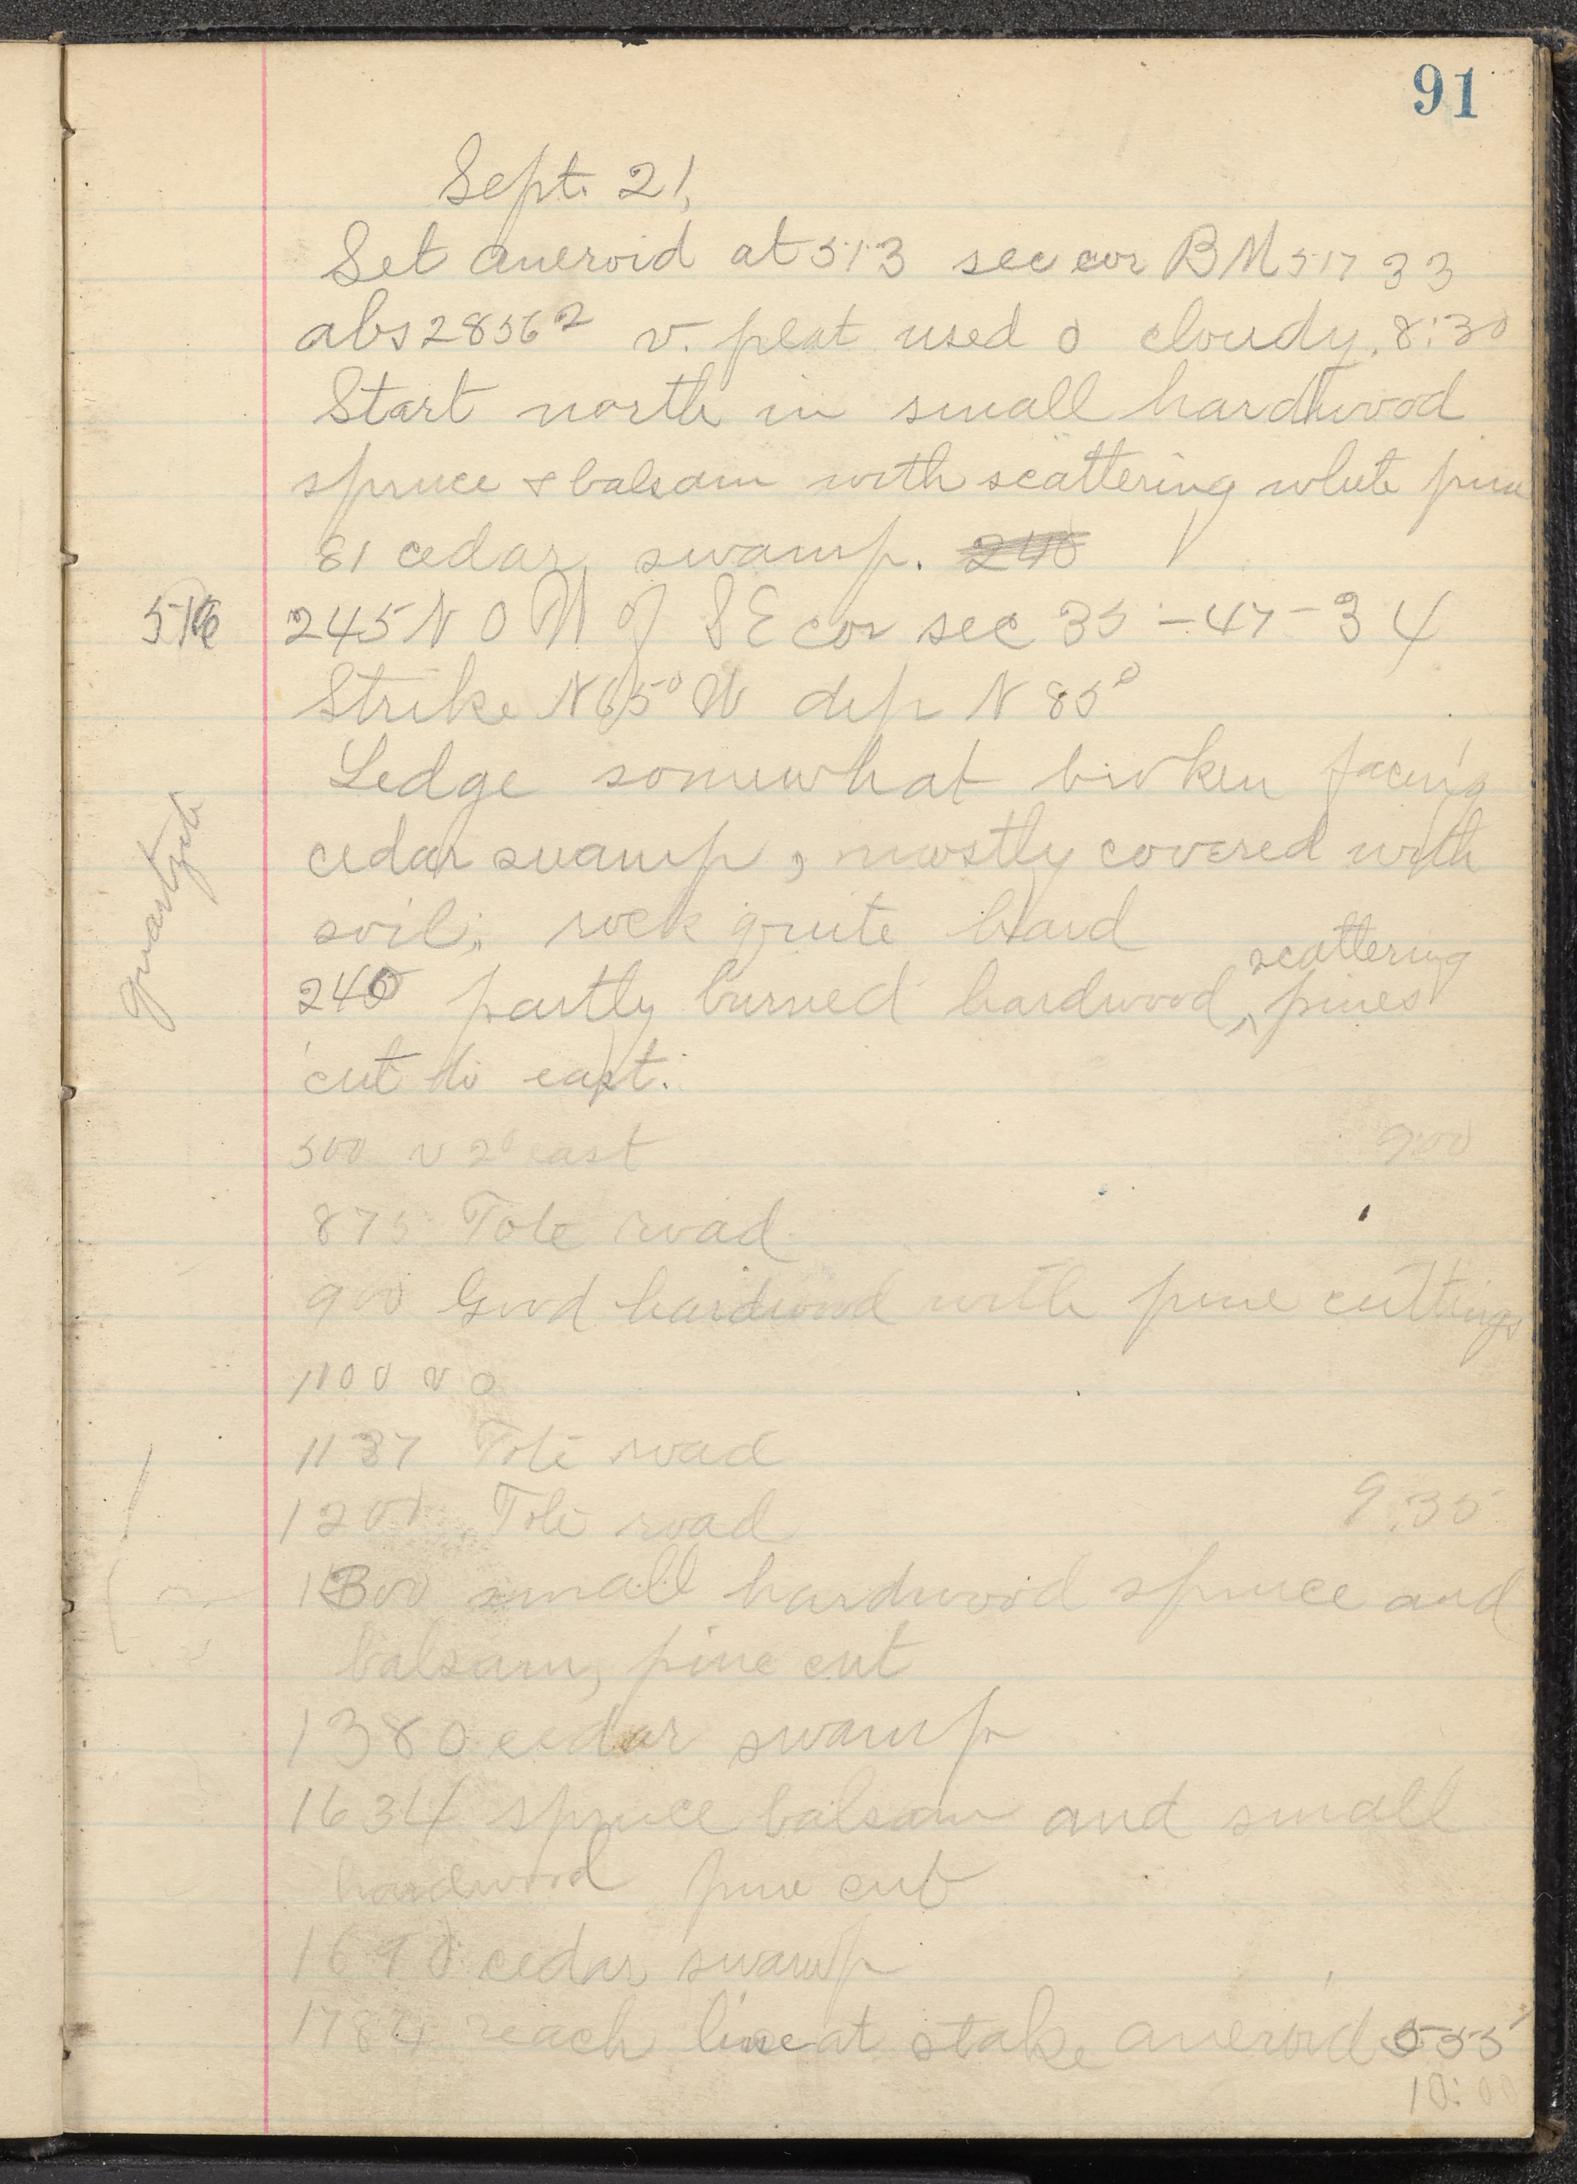 91
Sept. 21,
Set aneroid at 513 sec cor BM 517 33
abs 2856² v. plat used 0 cloudy. 8:30
Start north in small hardwood
spruce & balsam with scattering white pine
81 cedar swamp. 240
516 245 N 0 W of SE cor sec 35-47-34
Strike N65°W dip N 85°
Ledge somewhat broken facing
cedar swamp, mostly covered with
quartzite
soil; rock quite hard
scattering
240 partly burned hardwood, pines
cut to east.
500 v 2° east 9:00
875 Tote road
900 Good hardwood with pine cuttings
1100 v 0
1137 Tote road
1201 Tote road 9:35
1300 small hardwood spruce and
balsam, pine cut
1380 cedar swamp
1634 spruce balsam and small
hardwood pine cut
1690 cedar swamp
1784 reach line at stake aneroid 555
10:00